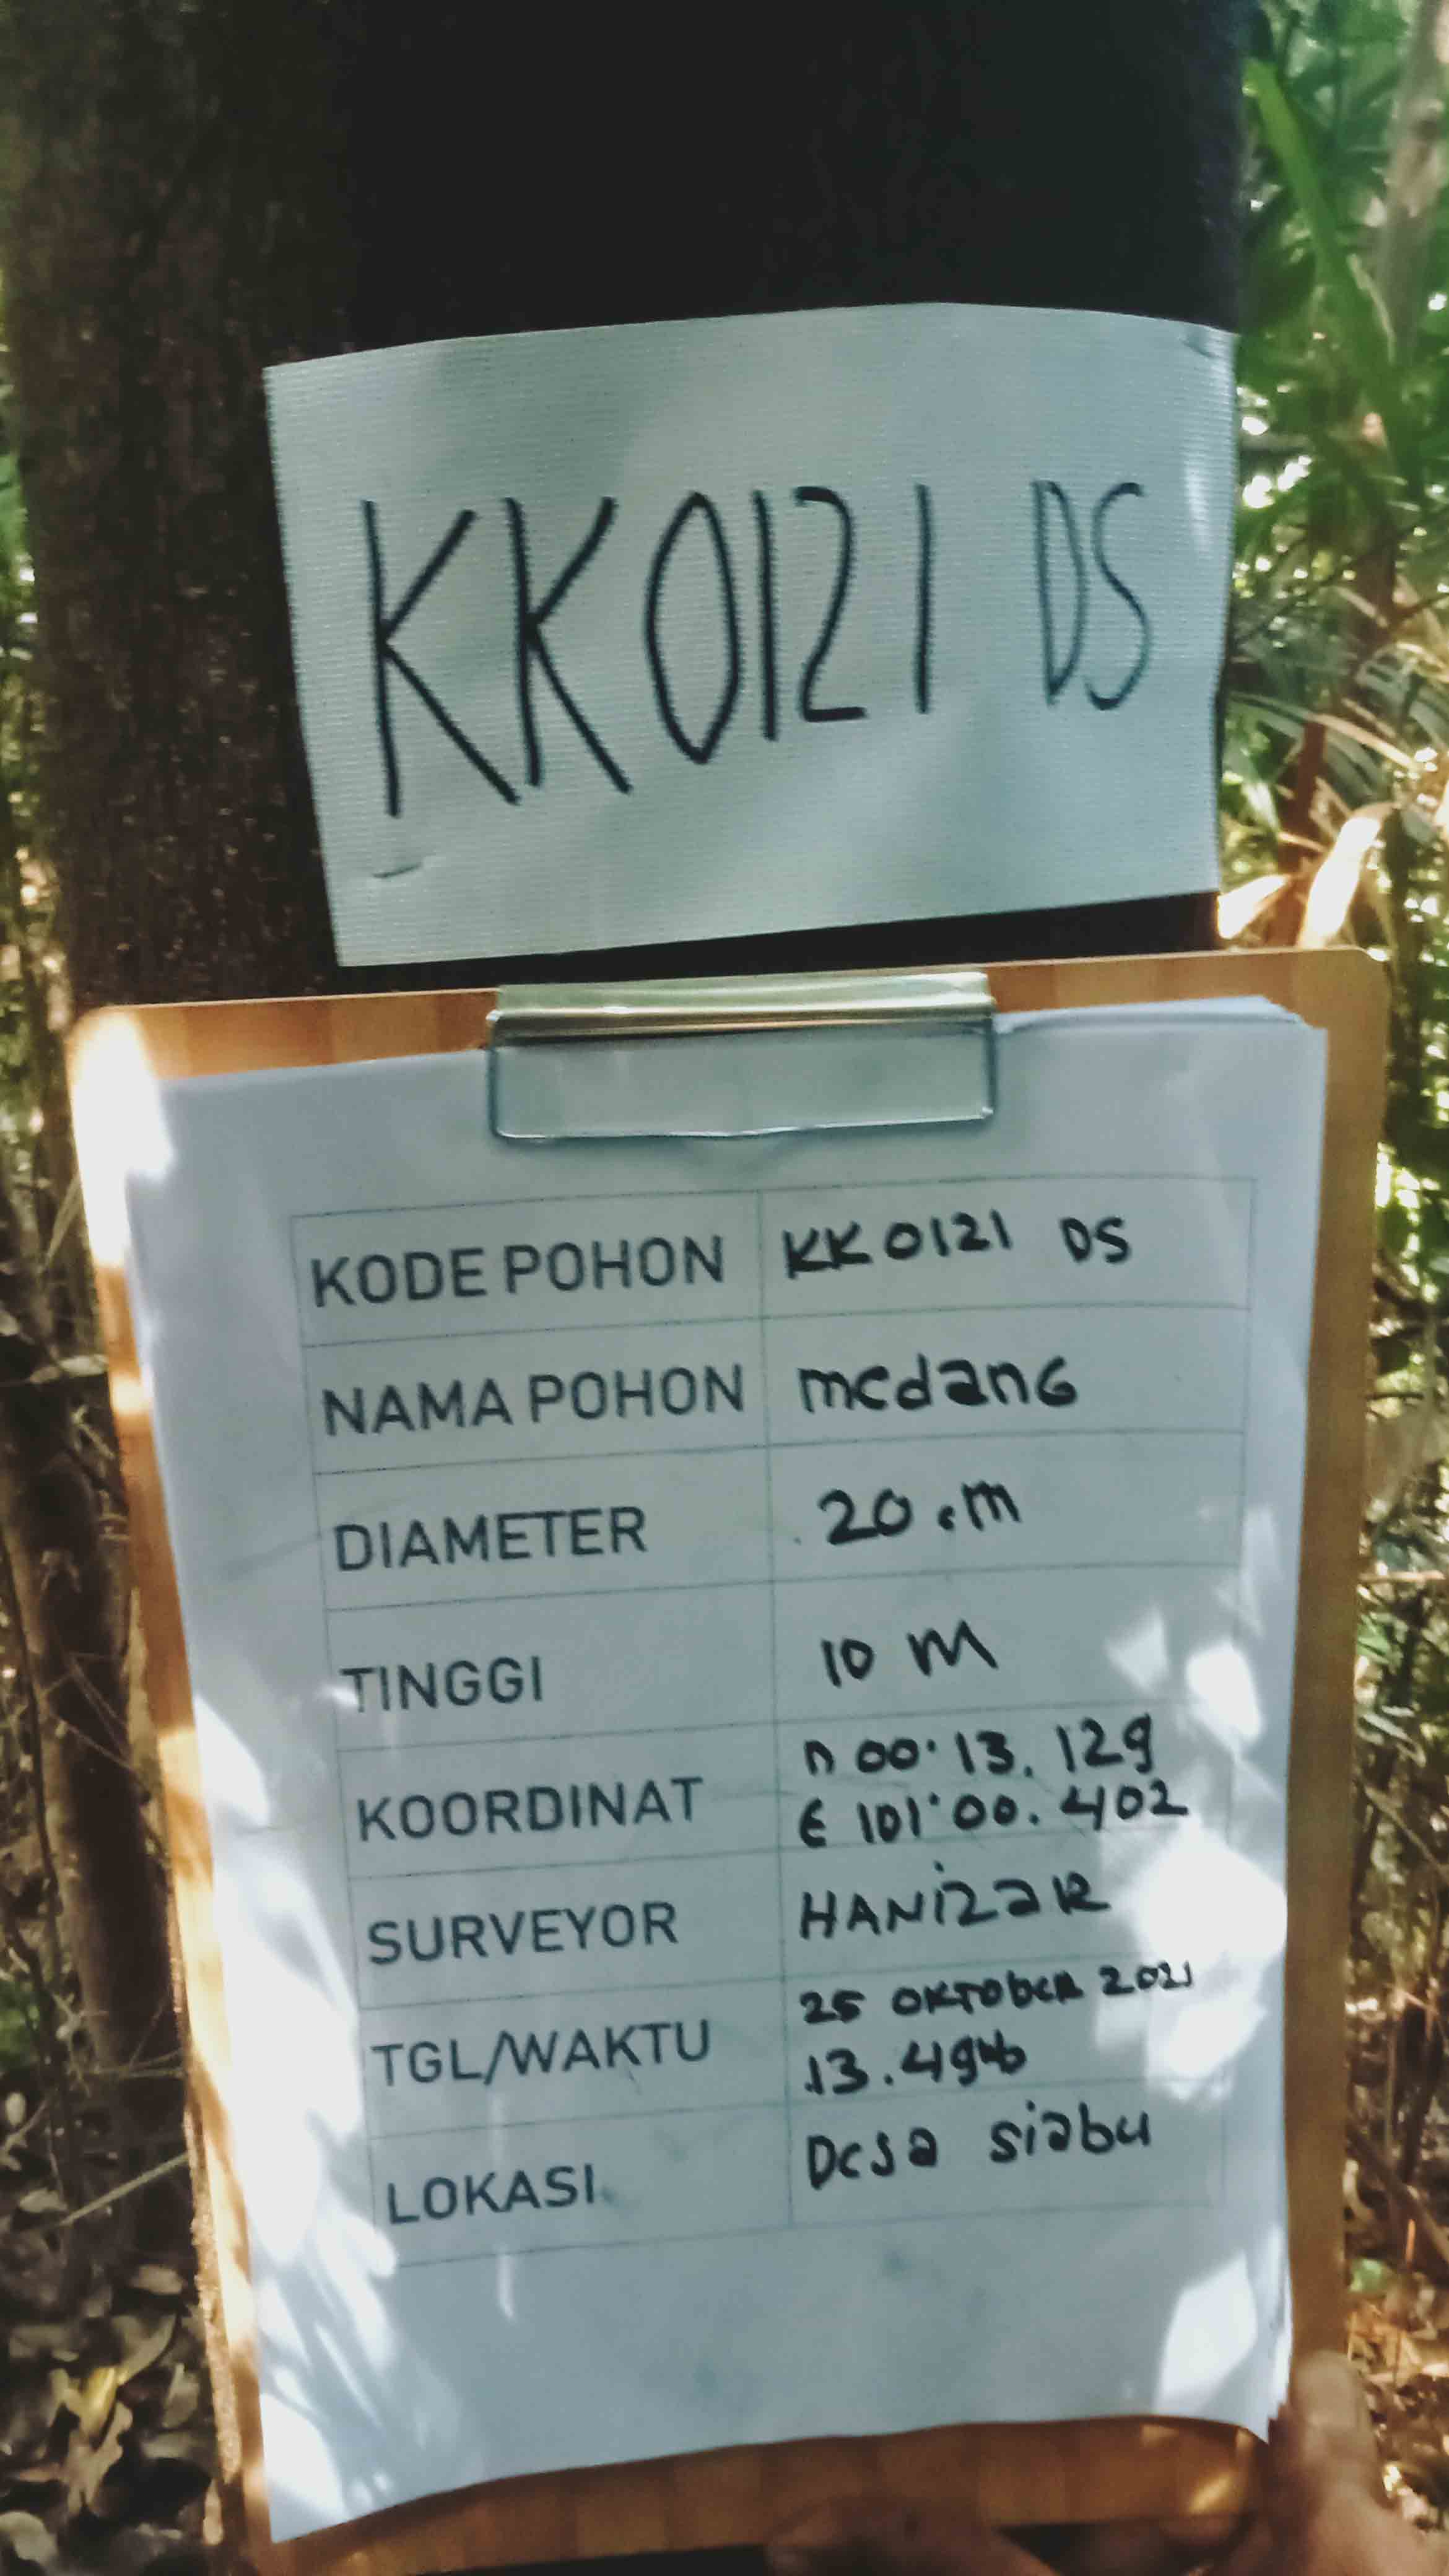 KK0121 DS
KODE POHON KK0121 DS
NAMA POHON medanG
DIAMETER 20 cm
TINGGI 10 M
KOORDINAT n 00° 13. 129
E 101° 00. 402
SURVEYOR HANizaR
TGL/WAKTU 25 OKTOBER 2021
13.49 wb
LOKASI Desa siabu